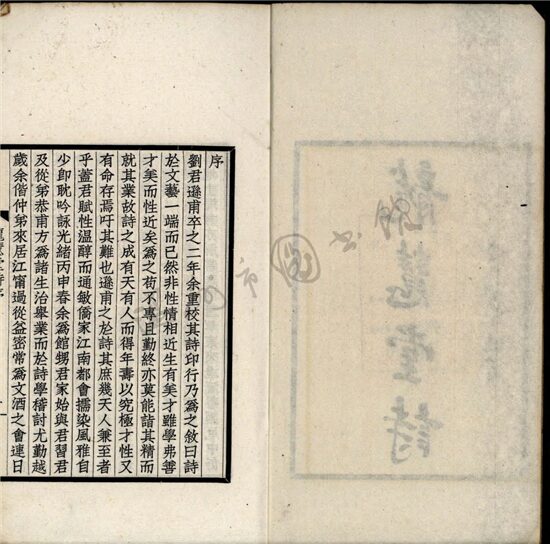 序
劉君遜甫卒之二年余重校其詩印行乃爲之敘曰詩
於文藝一端而已然非性情相近生有美才雖學弗善
才美而性近矣爲之苟不專且勤終亦莫能詣其精而
就其業故詩之成有天有人而得年壽以究極才性又
有命存焉吁其難也遜甫之於詩其庶幾天人兼至者
乎蓋君賦性溫醇而通敏僑家江南都會擩染風雅自
少卽耽吟詠光緒丙申春余爲館甥君家始與君習君
及從弟恭甫方爲諸生治舉業而於詩學稽討尤勤越
歲余偕仲弟來居江甯過從益密常爲文酒之會連日